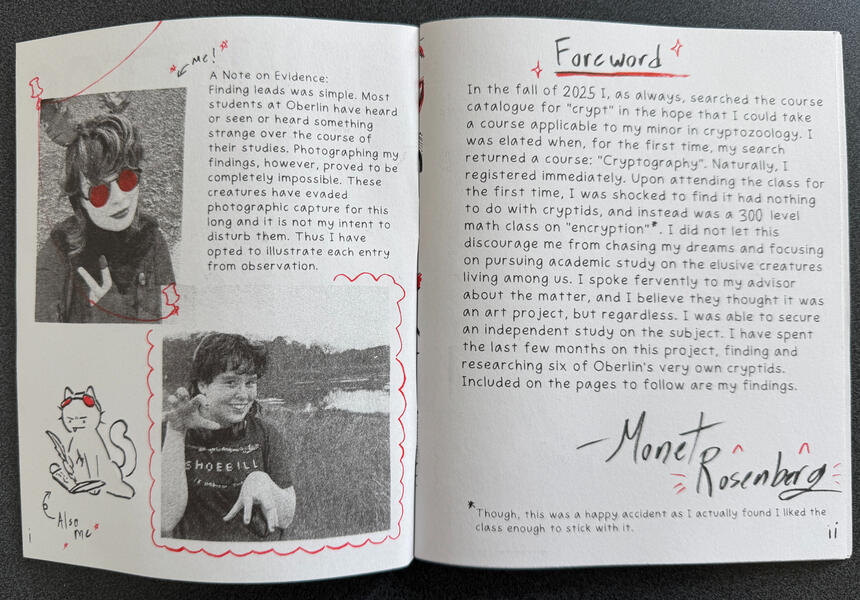 me!
A Note on Evidence:
Finding leads was simple. Most
students at Oberlin have heard
or seen or heard something
strange over the course of
their studies. Photographing my
findings, however, proved to be
completely impossible. These
creatures have evaded
photographic capture for this
long and it is not my intent to
disturb them. Thus I have
opted to illustrate each entry
from observation.
SHOEBILL
Also
me
i
Foreword
In the fall of 2025 I, as always, searched the course
catalogue for "crypt" in the hope that I could take
a course applicable to my minor in cryptozoology. I
was elated when, for the first time, my search
returned a course: "Cryptography". Naturally, I
registered immediately. Upon attending the class for
the first time, I was shocked to find it had nothing
to do with cryptids, and instead was a 300 level
math class on "encryption"*. I did not let this
discourage me from chasing my dreams and focusing
on pursuing academic study on the elusive creatures
living among us. I spoke fervently to my advisor
about the matter, and I believe they thought it was
an art project, but regardless. I was able to secure
an independent study on the subject. I have spent
the last few months on this project, finding and
researching six of Oberlin's very own cryptids.
Included on the pages to follow are my findings.
-Monet
Rosenberg
*Though, this was a happy accident as I actually found I liked the
class enough to stick with it.
ii